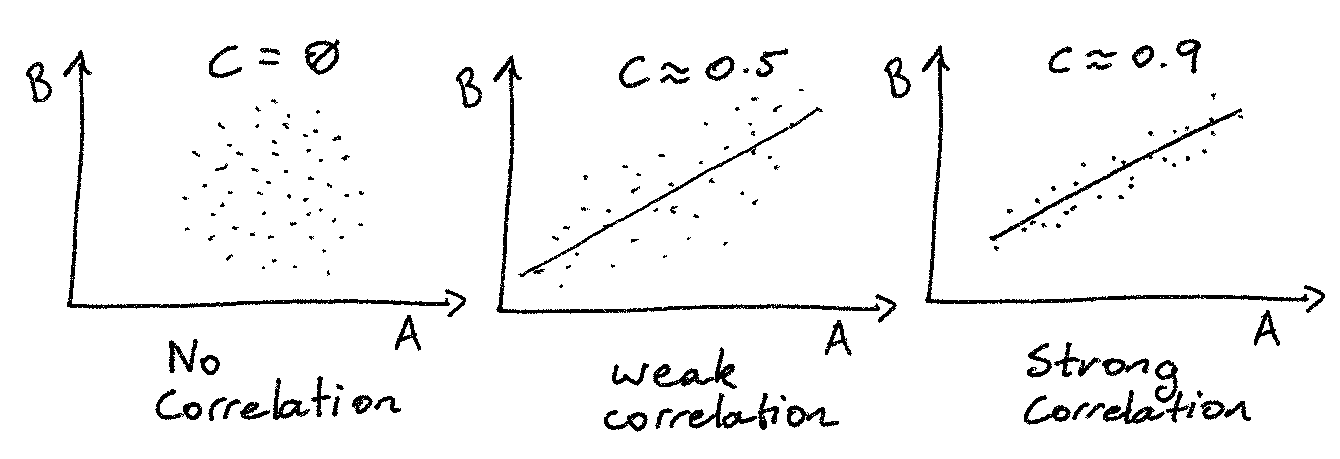 B
C = Ø
A
No
Correlation
B
C ≈ 0.5
A
weak
correlation
B
C ≈ 0.9
A
Strong
Correlation